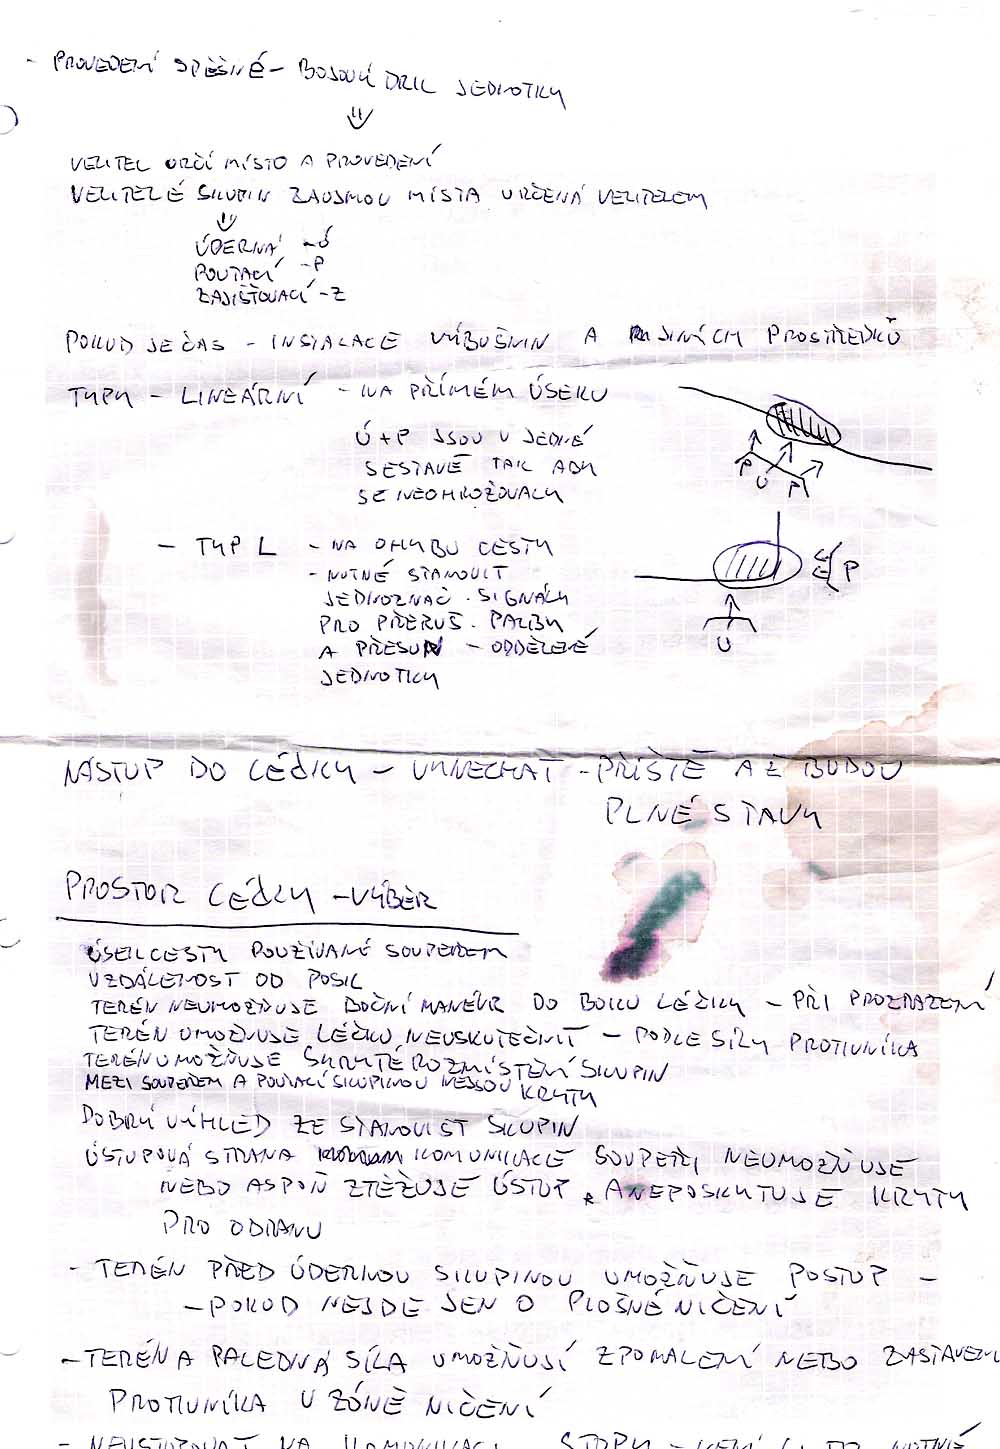 - PROVEDENÍ SPĚŠNÉ - BOJOVÝ DRIL JEDNOTKY
VELITEL URČÍ MÍSTO A PROVEDENÍ
VELITELÉ SKUPIN ZAUJMOU MÍSTA URČENÁ VELITELEM
ÚDERNÁ - Ú
POUTACÍ - P
ZAJIŠŤOVACÍ - Z
POKUD JE ČAS - INSTALACE VÝBUŠNIN A JINÝCH PROSTŘEDKŮ
TYPY - LINEÁRNÍ - NA PŘÍMÉM ÚSEKU
Ú + P JSOU V JEDNÉ
SESTAVĚ TAK ABY
SE NEOHROŽOVALY
P
U
P
- TYP L - NA OHYBU CESTY
- NUTNÉ STANOVIT
JEDNOZNAČ. SIGNÁLY
PRO PŘERUŠ. PALBY
A PŘESUN - ODDĚLENÉ
JEDNOTKY
P
U
NÁSTUP DO LÉČKY - VYNECHAT - PŘÍŠTĚ AŽ BUDOU
PLNÉ STAVY
PROSTOR LÉČKY - VÝBĚR
ÚSEK CESTY POUŽÍVANÉ SOUPEŘEM
VZDÁLENOST OD POSIL
TERÉN NEUMOŽŇUJE BOČNÍ MANÉVR DO BOKU LÉČKY - PŘI PROZRAZENÍ
TERÉN UMOŽNUJE LÉČKU NEUSKUTEČNIT - PODLE SÍLY PROTIVNÍKA
TERÉN UMOŽŇUJE SKRYTÉ ROZMÍSTĚNÍ SKUPIN
MEZI SOUPEŘEM A POUTACÍ SKUPINOU NEJSOU KRYTY
DOBRÝ VÝHLED ZE STANOVIŠT SKUPIN
ÚSTUPOVÁ STRANA KOMUNIKACE SOUPEŘI NEUMOŽŇUJE
NEBO ASPOŇ ZTĚŽUJE ÚSTUP A NEPOSKYTUJE KRYTY
PRO OBRANU
- TERÉN PŘED ÚDERNOU SKUPINOU UMOŽŇUJE POSTUP -
- POKUD NEJDE JEN O PLOŠNÉ NIČENÍ
- TERÉN A PALEBNÁ SÍLA UMOŽŇUJÍ ZPOMALENÍ NEBO ZASTAVENÍ
PROTIVNÍKA V ZÓNĚ NIČENÍ
- NEVSTUPOVAT NA KOMUNIKACI STOPY - NENÍ LI TO NUTNÉ